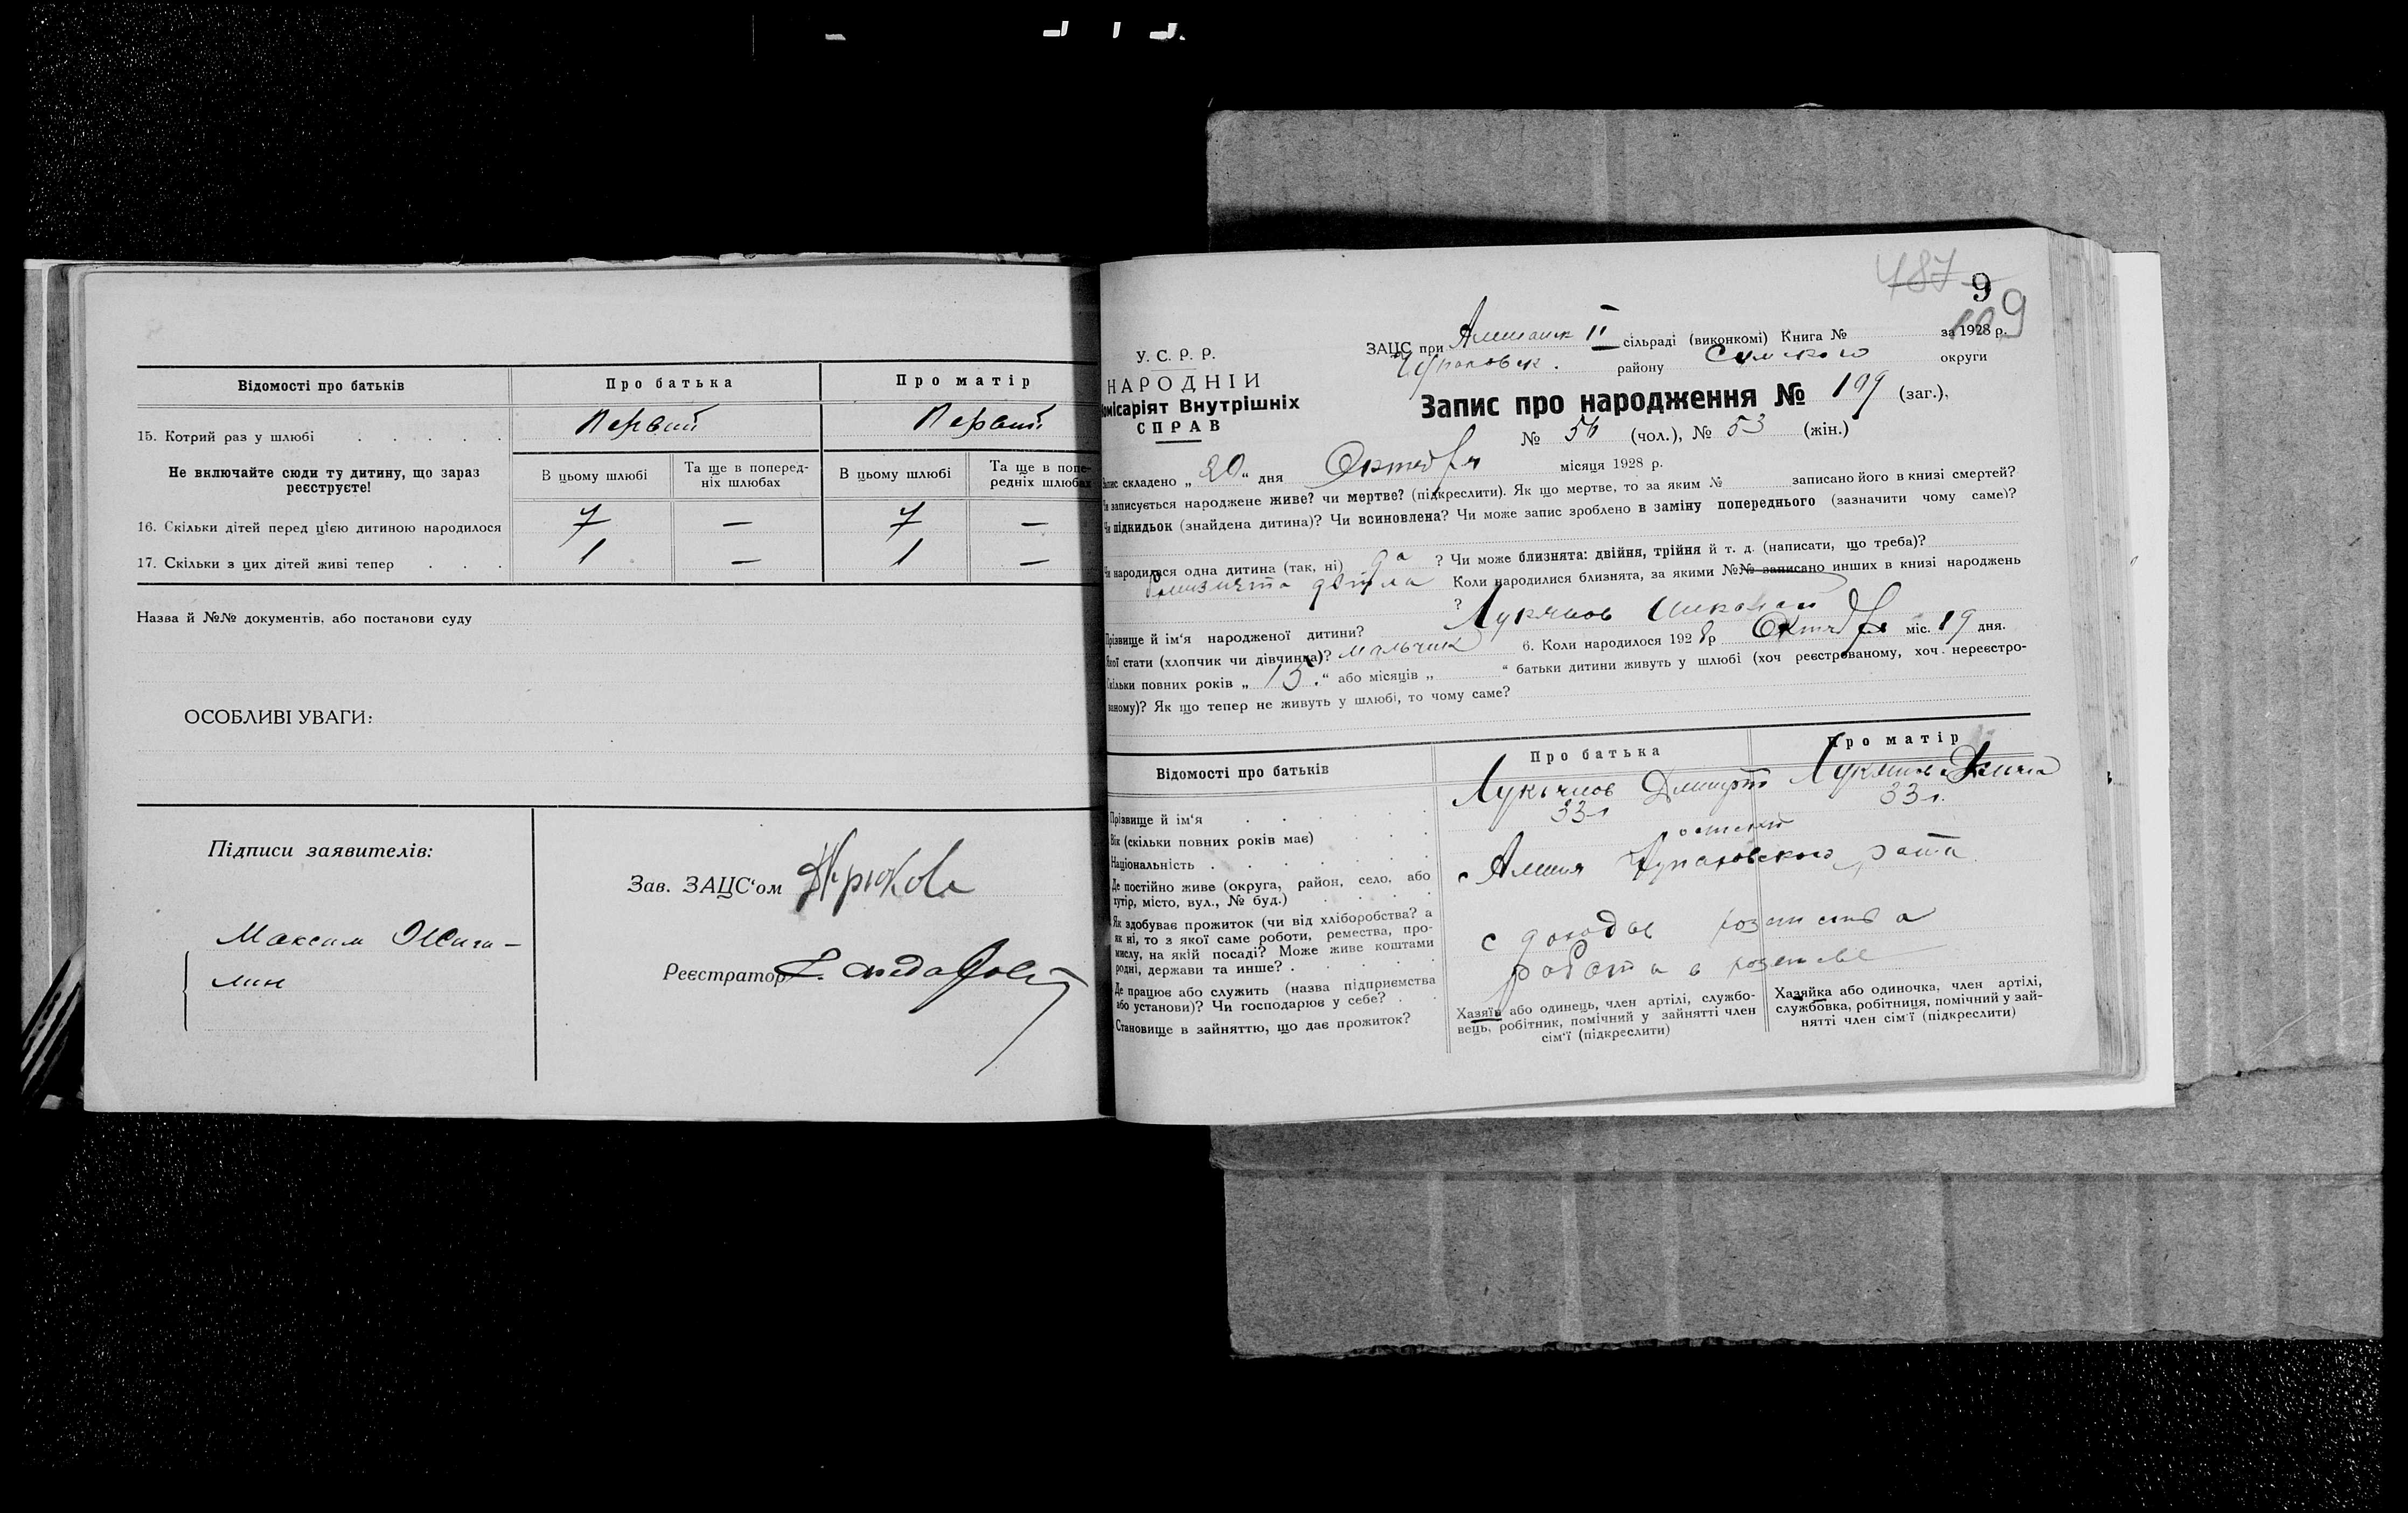 Відомості про батьків
Про батька
Про матір
15. Котрий раз у шлюбі
Первий
Первий
Не включайте сюди ту дитину, що зараз реєструєте!
В цьому шлюбі
Та ще в поперед-
ніх шлюбах
В цьому шлюбі
Та ще в попе-
редніх шлюбах
16. Скільки дітей перед цією дитиною народилося
7 — 7 —
17. Скільки з цих дітей живі тепер
1 — 1 —
Назва й №№ документів, або постанови суду
ОСОБЛИВІ УВАГИ:
Підписи заявителів:
Максим
Зав. ЗАЦС‘ом Крюков
Реєстратор
487 9
109
У. С. Р. Р.
НАРОДНІЙ
омісаріят Внутрішніх
СПРАВ
ЗАЦС при II сільраді (виконкомі) Книга № за 1928 р.
району Сумского округи
Запис про народження № 109 (заг.),
№ 56 (чол.), № 53 (жін.)
Запис складено „20“ дня Октября місяця 1928 р.
Чи записується народжене живе? чи мертве? (підкреслити). Як що мертве, то за яким № записано його в книзі смертей?
Чи підкидьок (знайдена дитина)? Чи всиновлена? Чи може запис зроблено в заміну попереднього (зазначити чому саме)?
Чи народилася одна дитина (так, ні) да ? Чи може близнята: двійня, трійня й т. д. (написати, що треба)?
Коли народилися близнята, за якими №№ записано инших в книзі народжень
?
Прізвище й ім‘я народженої дитини? Лукянов
Якої стати (хлопчик чи дівчинка)? мальчик 6. Коли народилося 1928 р Октября міс. 19 дня.
Скільки повних років „ 15 “ або місяців „ “ батьки дитини живуть у шлюбі (хоч реєстрованому, хоч нереєстро-
ваному)? Як що тепер не живуть у шлюбі, то чому саме?
Відомості про батьків
Про батька
Про матір
Прізвище й ім‘я
Лукянов Дмитрий
Вік (скільки повних років має)
33 г
33 г.
Національність
Де постійно живе (округа, район, село, або
хутір, місто, вул., № буд.)
Як здобуває прожиток (чи від хліборобства? а
як ні, то з якої саме роботи, ремества, про-
мислу, на якій посаді? Може живе коштами
родні, держави та инше?
с
Де працює або служить (назва підприємства
або установи)? Чи господарює у себе?
Становище в зайняттю, що дає прожиток?
Хазяїн або одинець, член артілі, службо-
вець, робітник, помічний у зайнятті член
сім‘ї (підкреслити)
Хазяйка або одиночка, член артілі,
службовка, робітниця, помічний у зай-
нятті член сім‘ї (підкреслити)